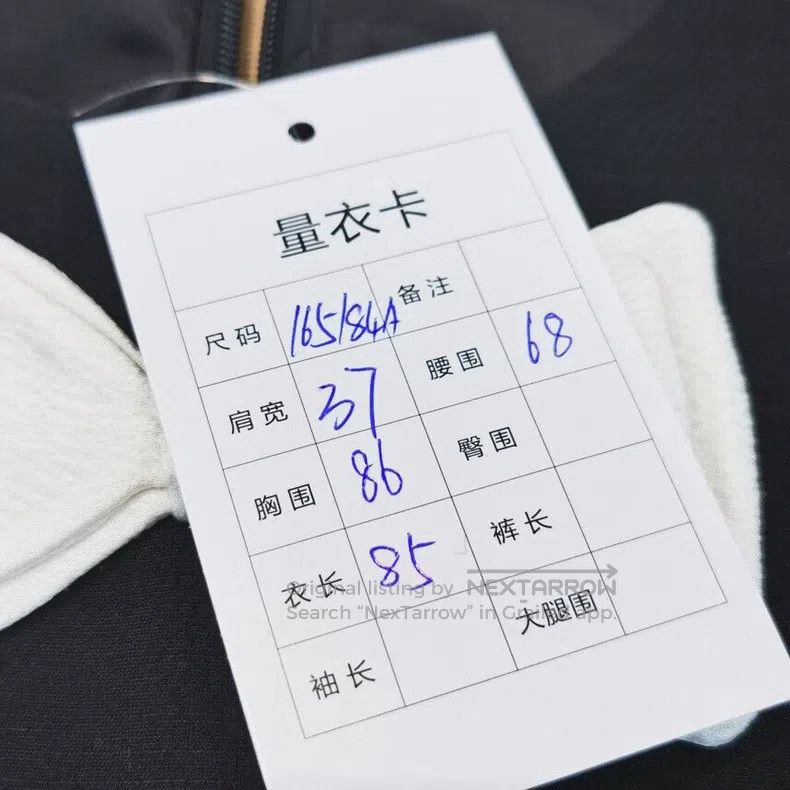 量衣卡
尺码 165/84A 备注
肩宽 37 腰围 68
胸围 86 臀围
衣长 85 裤长
袖长 大腿围
Original listing by NEXTARROW
Search “NexTarrow” in Grailed app.